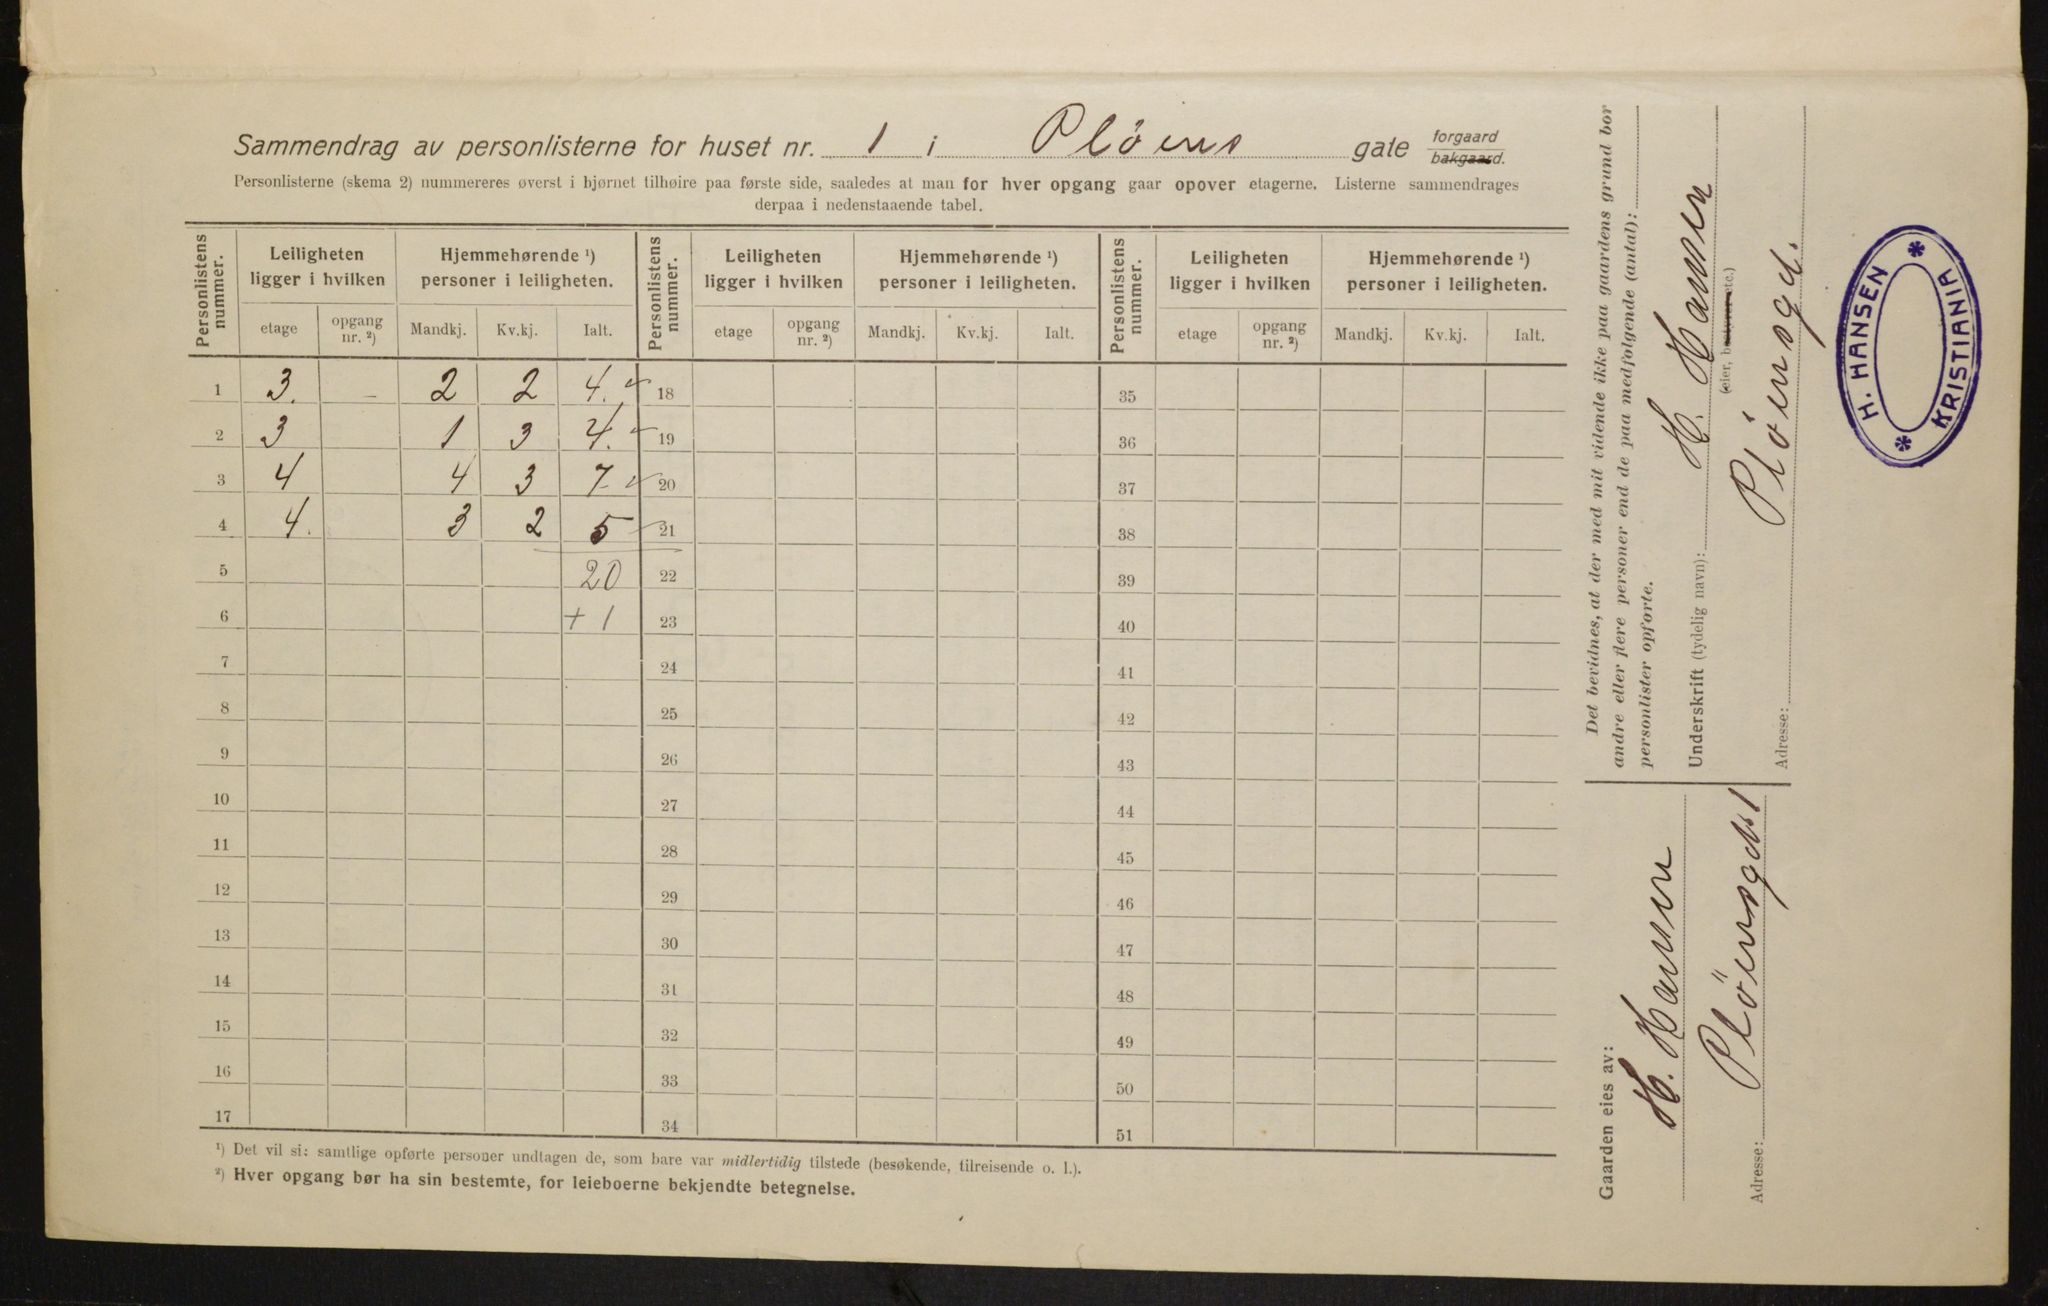 Sammendrag av personlisterne for huset nr. 1 i Pløens gate forgaard bakgaard.
Personlisterne (skema 2) nummereres øverst i hjørnet tilhøire paa første side, saaledes at man for hver opgang gaar opover etagerne. Listerne sammendrages
derpaa i nedenstaaende tabel.
Personlistens nummer. Leiligheten ligger i hvilken Hjemmehørende ¹) personer i leiligheten. Personlistens nummer. Leiligheten ligger i hvilken Hjemmehørende ¹) personer i leiligheten. Personlistens nummer. Leiligheten ligger i hvilken Hjemmehørende ¹) personer i leiligheten.
etage opgang nr. ²) Mandkj. Kv.kj. Ialt. etage opgang nr. ²) Mandkj. Kv.kj. Ialt. etage opgang nr. ²) Mandkj. Kv.kj. Ialt.
1 3. – 2 2 4. 18 35
2 3 1 3 4. 19 36
3 4 4 3 7 20 37
4 4. 3 2 5 21 38
5 20 22 39
6 + 1 23 40
7 24 41
8 25 42
9 26 43
10 27 44
11 28 45
12 29 46
13 30 47
14 31 48
15 32 49
16 33 50
17 34 51
¹) Det vil si: samtlige opførte personer undtagen de, som bare var midlertidig tilstede (besøkende, tilreisende o. l.).
²) Hver opgang bør ha sin bestemte, for leieboerne bekjendte betegnelse.
Det bevidnes, at der med mit vidende ikke paa gaardens grund bor
andre eller flere personer end de paa medfølgende (antal):
personlister opførte.
Underskrift (tydelig navn): H. Hansen
(eier, bestyrer etc.)
Adresse: Pløensgd.
Gaarden eies av:
H. Hansen
Adresse: Pløensgd. 1
H. HANSEN * KRISTIANIA *